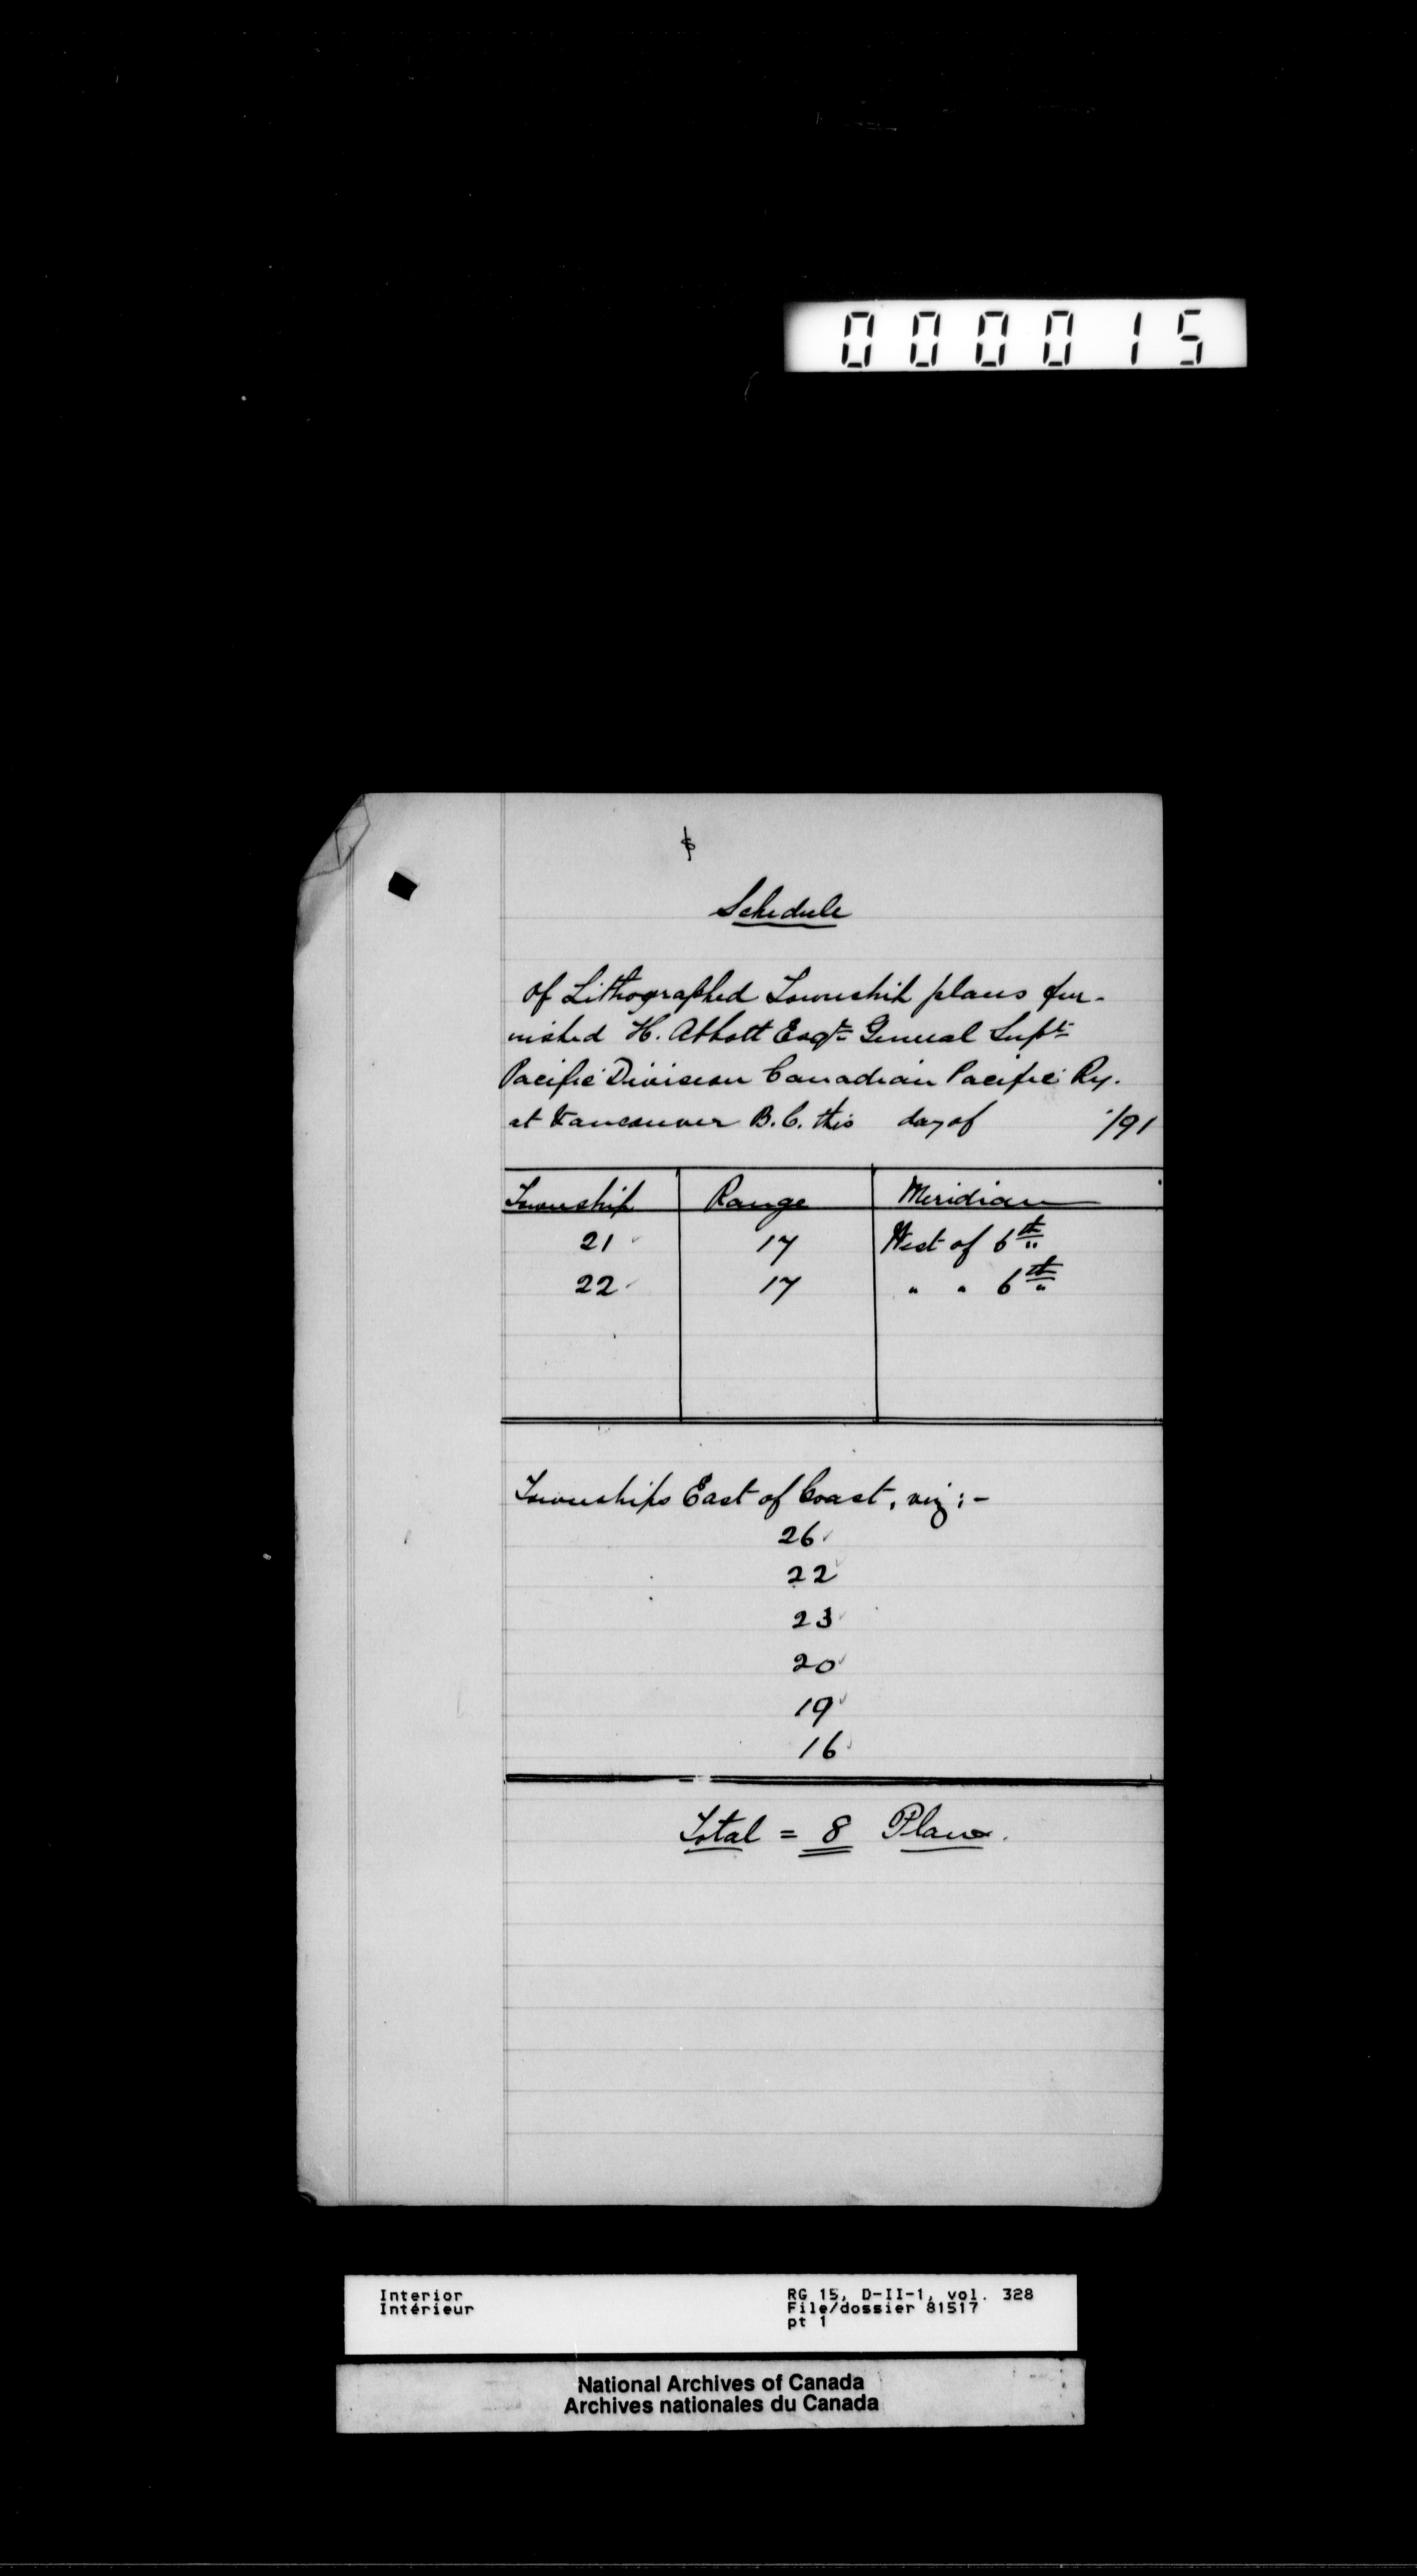 000015
Schedule
of Lithographed Township plans fur-
nished H. Abbott Esqr General Supt
Pacific Division Canadian Pacific Ry.
at Vancouver B.C. this day of /91
Township Range Meridian
21 17 West of 6th
22 17 " " 6th
Townships East of Coast, viz:-
26
22
23
20
19
16
Total = 8 Plans.
Interior RG 15, D-II-1, vol. 328
Intérieur File/dossier 81517
pt 1
National Archives of Canada
Archives nationales du Canada